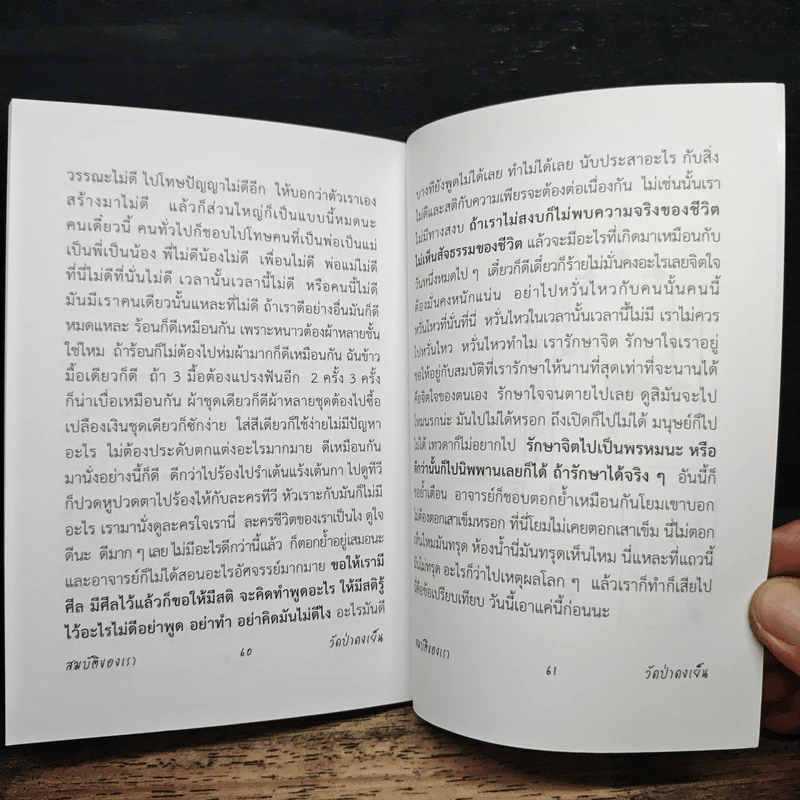 วรรณะไม่ดี ไปโทษปัญญาไม่ดีอีก ให้บอกว่าตัวเราเอง
สร้างมาไม่ดี แล้วก็ส่วนใหญ่ก็เป็นแบบนี้หมดนะ
คนเดี๋ยวนี้ คนทั่วไปก็ชอบไปโทษคนที่เป็นพ่อเป็นแม่
เป็นพี่เป็นน้อง พี่ไม่ดีน้องไม่ดี เพื่อนไม่ดี พ่อแม่ไม่ดี
ที่นี่ไม่ดีที่นั่นไม่ดี เวลานั้นเวลานี้ไม่ดี หรือคนนี้ไม่ดี
มันมีเราคนเดียวนั้นแหละที่ไม่ดี ถ้าเราดีอย่างอื่นมันก็ดี
หมดแหละ ร้อนก็ดีเหมือนกัน เพราะหนาวต้องผ้าหลายชั้น
ใช่ไหม ถ้าร้อนก็ไม่ต้องไปห่มผ้ามากก็ดีเหมือนกัน ฉันข้าว
มื้อเดียวก็ดี ถ้า 3 มื้อต้องแปรงฟันอีก 2 ครั้ง 3 ครั้ง
ก็น่าเบื่อเหมือนกัน ผ้าชุดเดียวก็ดีผ้าหลายชุดต้องไปซื้อ
เปลืองเงินชุดเดียวก็ซักง่าย ใส่สีเดียวก็ใช้ง่ายไม่มีปัญหา
อะไร ไม่ต้องประดับตกแต่งอะไรมากมาย ดีเหมือนกัน
มานั่งอย่างนี้ก็ดี ดีกว่าไปร้องไปรำเต้นแร้งเต้นกา ไปดูทีวี
ก็ปวดหูปวดตาไปร้องไห้กับละครทีวี หัวเราะกับมันก็ไม่มี
อะไร เรามานั่งดูละครใจเรานี่ ละครชีวิตของเราเป็นไง ดูใจ
ดีนะ ดีมาก ๆ เลย ไม่มีอะไรดีกว่านี้แล้ว ก็ตอกย้ำอยู่เสมอนะ
และอาจารย์ก็ไม่ได้สอนอะไรอัศจรรย์มากมาย ขอให้เรามี
ศีล มีศีลไว้แล้วก็ขอให้มีสติ จะคิดทำพูดอะไร ให้มีสติรู้
ไว้อะไรไม่ดีอย่าพูด อย่าทำ อย่าคิดมันไม่ดีไง อะไรมันดี
สมบัติของเรา 60 วัดป่าดงเย็น
บางทียังพูดไม่ได้เลย ทำไม่ได้เลย นับประสาอะไร กับสิ่ง
ไม่ดีและสติกับความเพียรจะต้องต่อเนื่องกัน ไม่เช่นนั้นเรา
ไม่มีทางสงบ ถ้าเราไม่สงบก็ไม่พบความจริงของชีวิต
ไม่เห็นสัจธรรมของชีวิต แล้วจะมีอะไรที่เกิดมาเหมือนกับ
วันหนึ่งหมดไป ๆ เดี๋ยวก็ดีเดี๋ยวก็ร้ายไม่มั่นคงอะไรเลยจิตใจ
ต้องมั่นคงหนักแน่น อย่าไปหวั่นไหวกับคนนั้นคนนี้
หวั่นไหวที่นั่นที่นี่ หวั่นไหวในเวลานั้นเวลานี้ไม่มี เราไม่ควร
ไปหวั่นไหว หวั่นไหวทำไม เรารักษาจิต รักษาใจเราอยู่
ขอให้อยู่กับสมบัติที่เรารักษาให้นานที่สุดเท่าที่จะนานได้
คือจิตใจของตนเอง รักษาใจจนตายไปเลย ดูสิมันจะไป
ไหมนรกน่ะ มันไปไม่ได้หรอก ถึงเปิดก็ไปไม่ได้ มนุษย์ก็ไป
ไม่ได้ เทวดาก็ไม่อยากไป รักษาจิตไปเป็นพรหมนะ หรือ
ดีกว่านั้นก็ไปนิพพานเลยก็ได้ ถ้ารักษาได้จริง ๆ อันนี้ก็
ขอย้ำเตือน อาจารย์ก็ชอบตอกย้ำเหมือนกันโยมเขาบอก
ไม่ต้องตอกเสาเข็มหรอก ที่นี่โยมไม่เคยตอกเสาเข็ม นี่ไม่ตอก
เห็นไหมมันทรุด ห้องน้ำนี่มันทรุดเห็นไหม นี่แหละที่แถวนี้
มันไม่ทรุด อะไรก็ว่าไปเหตุผลโลก ๆ แล้วเราก็ทำก็เสียไป
นี่คือข้อเปรียบเทียบ วันนี้เอาแค่นี้ก่อนนะ
สมบัติของเรา 61 วัดป่าดงเย็น